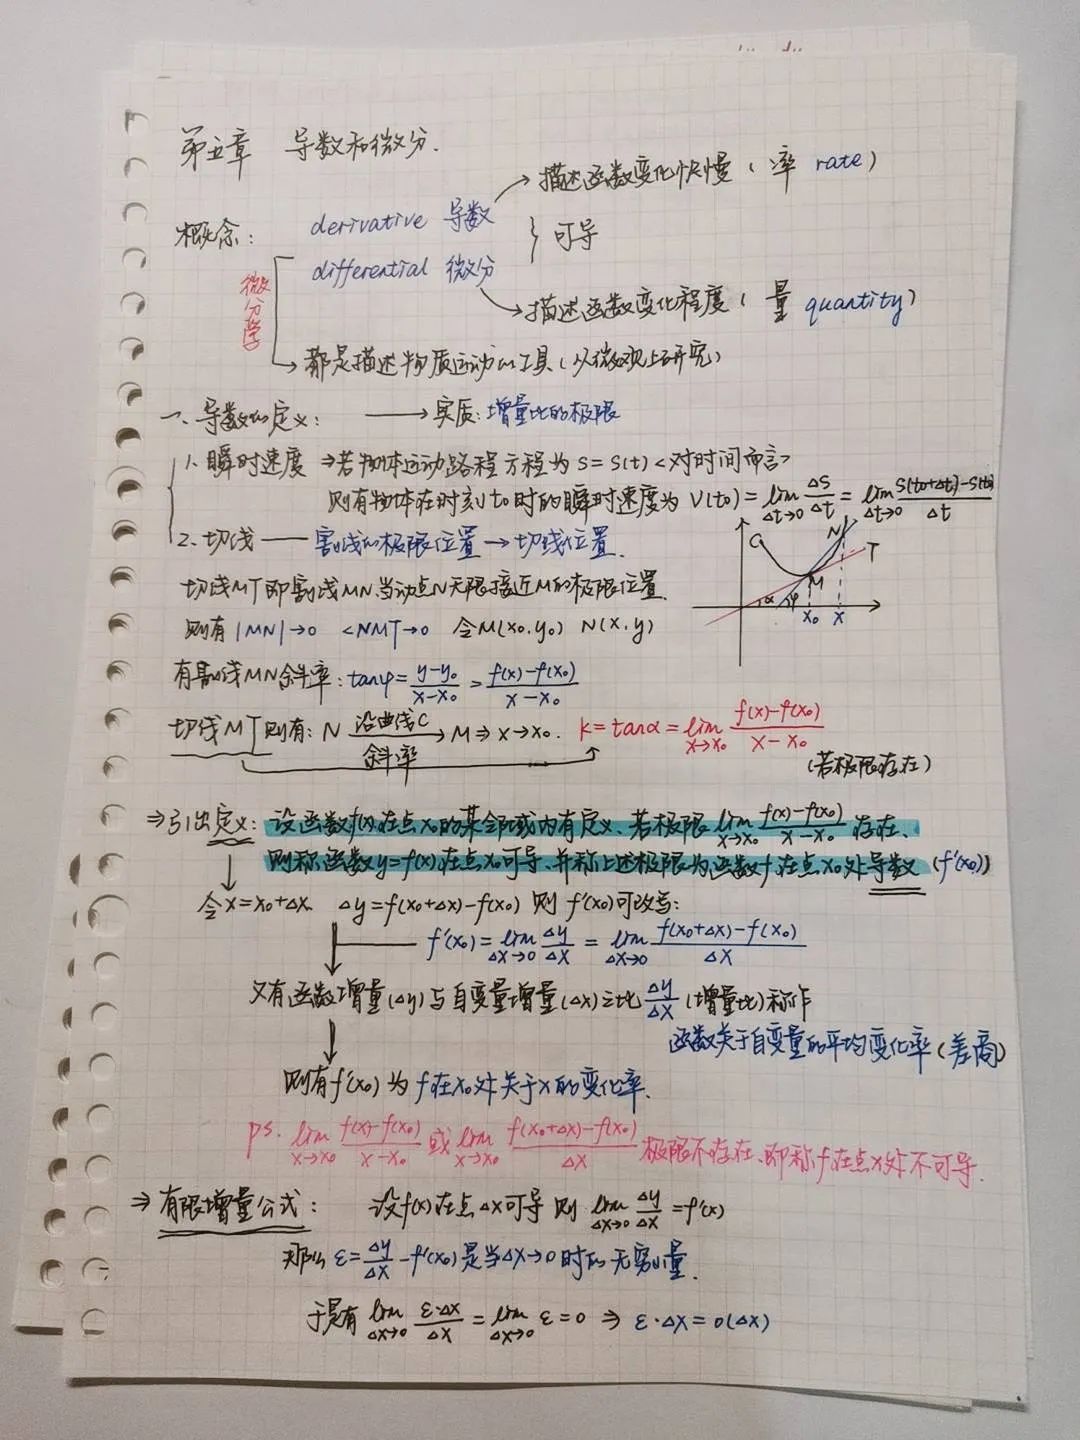 第五章 导数和微分.
概念: derivative 导数 } 可导
→描述函数变化快慢（率 rate）
differential 微分
→描述函数变化程度（量 quantity）
微分学
→都是描述物质运动的工具（从微观上研究）
一、导数的定义: → 实质: 增量比的极限
1. 瞬时速度 ⇒若物体运动路程方程为 S=S(t) <对时间而言>
则有物体在时刻 t0 时的瞬时速度为 V(t₀)=lim Δt→0 ΔS/Δt = lim Δt→0 (S(t₀+Δt)-S(t₀))/Δt
2. 切线 —— 割线的极限位置 → 切线位置.
C N T M α φ x₀ x
切线MT即割线MN当动点N无限接近M的极限位置.
则有 |MN|→0 <NMT→0 令M(x₀,y₀) N(x,y)
有割线MN斜率: tanφ = (y-y₀)/(x-x₀) = (f(x)-f(x₀))/(x-x₀)
切线MT则有: N 沿曲线C→ M ⇒ x→x₀. k=tanα=lim x→x₀ (f(x)-f(x₀))/(x-x₀)
斜率
(若极限存在)
⇒引出定义: 设函数f(x)在点x₀的某邻域内有定义、若极限 lim x→x₀ (f(x)-f(x₀))/(x-x₀) 存在、
则称函数y=f(x)在点x₀可导、并称上述极限为函数f在点x₀处导数 (f'(x₀))
令x=x₀+Δx Δy=f(x₀+Δx)-f(x₀) 则 f'(x₀)可改写:
f'(x₀)=lim Δx→0 Δy/Δx = lim Δx→0 (f(x₀+Δx)-f(x₀))/Δx
又有函数增量(Δy)与自变量增量(Δx)之比 Δy/Δx (增量比)称作
函数关于自变量的平均变化率(差商)
则有f'(x₀) 为 f在x₀处关于x的变化率.
ps. lim x→x₀ (f(x)-f(x₀))/(x-x₀) 或 lim x→x₀ (f(x₀+Δx)-f(x₀))/Δx 极限不存在、即称f在点x处不可导.
⇒ 有限增量公式: 设f(x)在点Δx可导 则 lim Δx→0 Δy/Δx = f'(x)
那么 ε=Δy/Δx-f'(x₀)是当Δx→0时的无穷小量.
于是有 lim Δx→0 (ε·Δx)/Δx = lim Δx→0 ε=0 ⇒ ε·Δx=o(Δx)